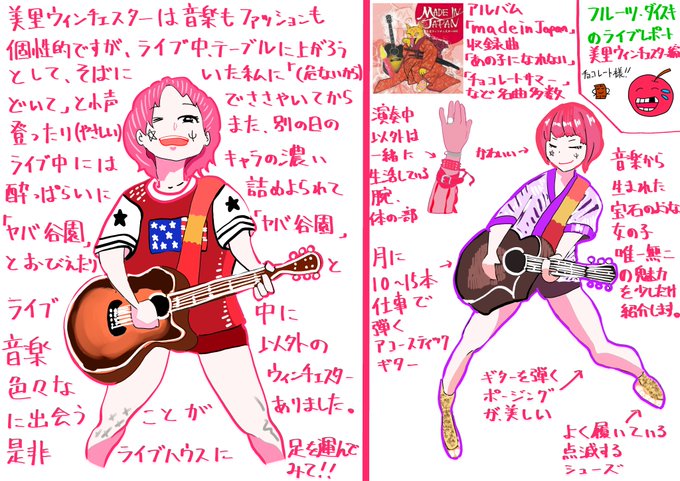 美里ウィンチェスターは音楽もファッションも
個性的ですが、ライブ中テーブルに上がろう
として、そばに いた私に「(危ないから)
どいて」と小声 でささやいてから
登ったり(やさしい) また、別の日の
ライブ中には キャラの濃い
酔っぱらいに 詰めよられて
「ヤバ谷園」 「ヤバ谷園」
とおびえたり と
ライブ 中に
音楽 以外の
色々な ウィンチェスター
に出会う ことが ありました。
是非 ライブハウスに 足を運んで
みて!!
MADE IN
JAPAN
アルバム
「made in Japan」
収録曲
「あの子になれない」
「チョコレートサマー」
など名曲多数
フルーツ・ダイスキ
のライブレポート
美里ウィンチェスター編
チョコレート様!!
演奏中
以外は
一緒に
生活している
腕、
体の一部
かわいい
音楽から
生まれた
宝石のような
女の子
唯一無二
の魅力
を少しだけ
紹介します。
月に
10〜15本
仕事で
弾く
アコースティック
ギター
ギターを弾く
ポージング
が美しい
よく履いている
点滅する
シューズ